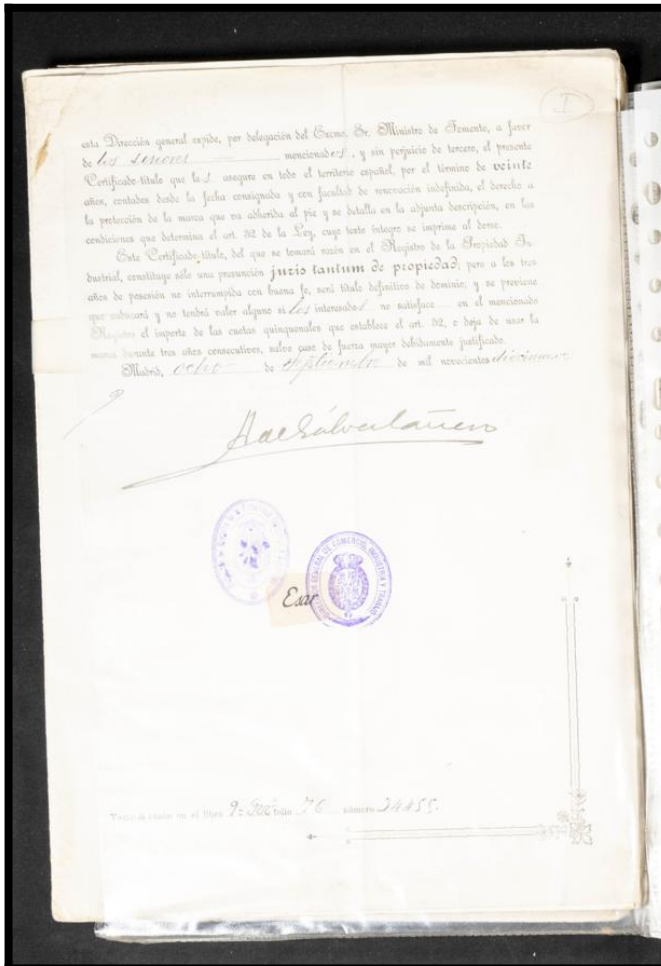 I
esta Dirección general expide, por delegación del Excmo. Sr. Ministro de Fomento, a favor
de los señores mencionados, y sin perjuicio de tercero, el presente
Certificado-título que les asegura en todo el territorio español, por el término de veinte
años, contados desde la fecha consignada y con facultad de renovación indefinida, el derecho a
la protección de la marca que va adherida al pie y se detalla en la adjunta descripción, en las
condiciones que determina el art. 32 de la Ley, cuyo texto íntegro se imprime al dorso.
Este Certificado-título, del que se tomará razón en el Registro de la Propiedad In-
dustrial, constituye sólo una presunción juris tantum de propiedad; pero a los tres
años de posesión no interrumpida con buena fe, será título definitivo de dominio, y se previene
que caducará y no tendrá valor alguno si los interesados no satisface en el mencionado
Registro el importe de las cuotas quinquenales que establece el art. 52, o deja de usar la
marca durante tres años consecutivos, salvo caso de fuerza mayor debidamente justificado.
Madrid, ocho de septiembre de mil novecientos
GENERAL DE COMERCIO, INDUSTRIA Y TRABAJO
Esar
en el libro 9 folio 76 número 34455.